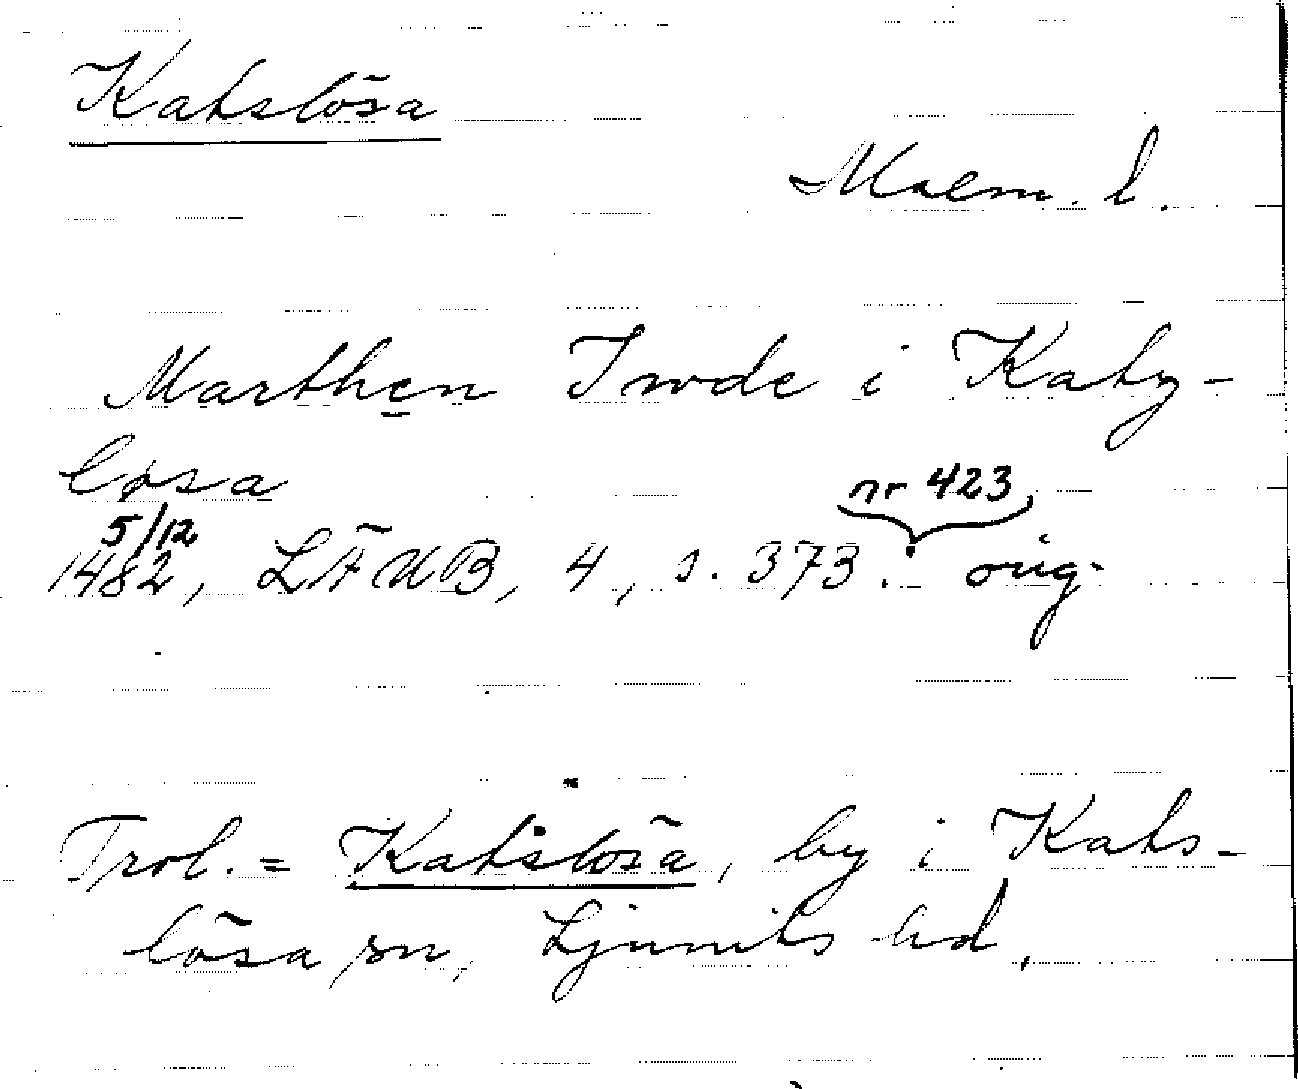 Katslösa
Malm. l.
Marthen Jwde i Katz-
løsa
nr 423
5/12
1482, LÄUB, 4, s. 373. orig.
Trol. = Katslösa, by i Kats-
lösa sn, Ljunits hd,